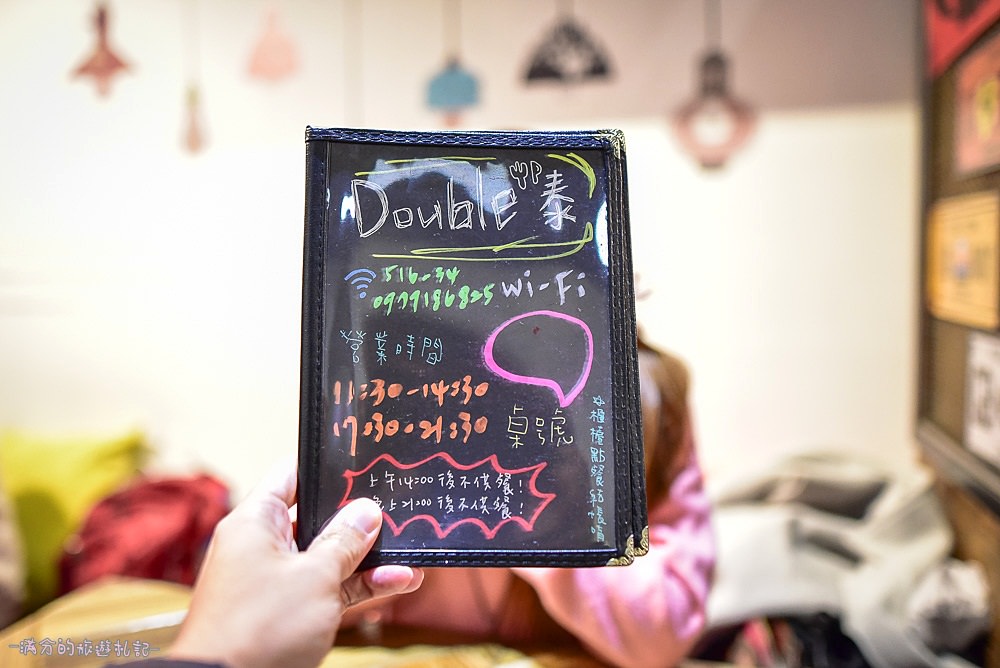 Double 泰
516-34
0979186825
Wi-Fi
營業時間
11:30-14:30
17:30-21:30
桌號
上午14:00後不供餐!
晚上21:00後不供餐!
櫃檯點餐結帳唷
-滿分的旅遊札記-